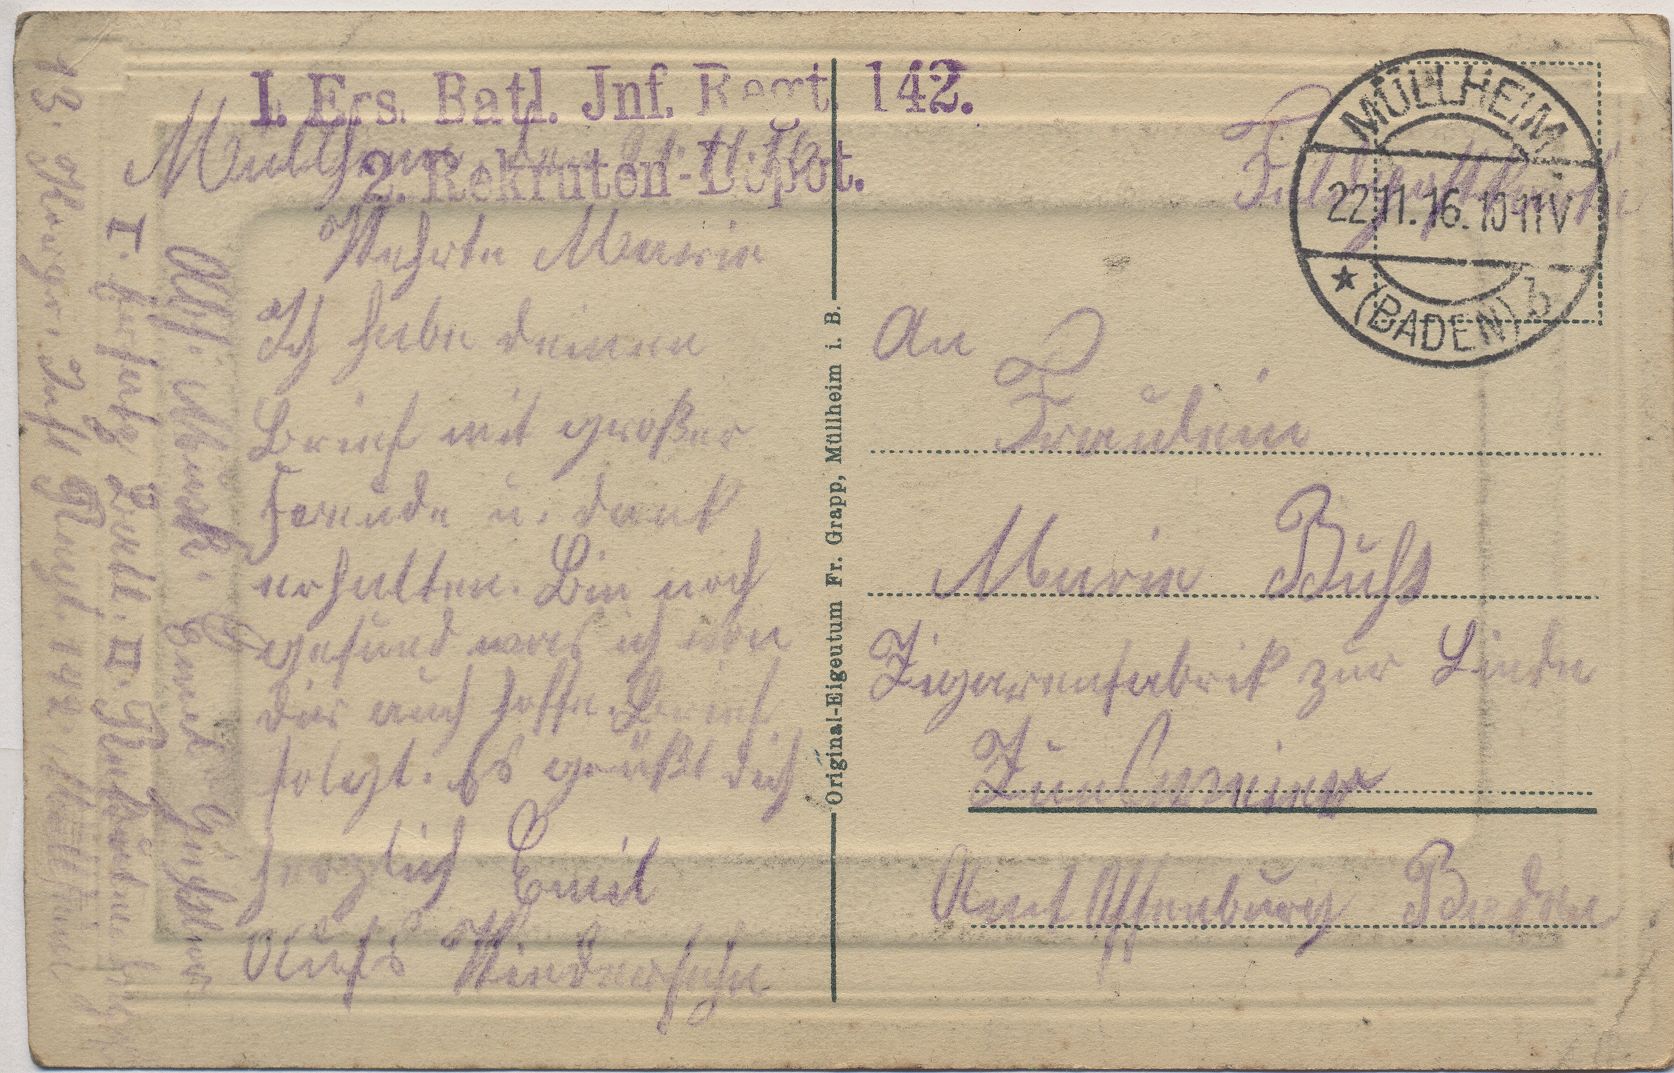 I. Ers. Batl. Jnf. Regt. 142.
2. Rekruten-Depot.
Müllheim den 21.11.16
Feldpostkarte
MÜLLHEIM
22.11.16. 10-11V
★ (BADEN) b
Wehrte Marie
Ich habe deinen
Brief mit großer
Freude u. dank
erhalten. Bin noch
gesund was ich von
dir auch hoffe. Brief
folgt. Es grüßt dich
herzlich Emil
Aufs Wiedersehn
An
Fräulein
Marie Buhs
Zigarenfabrik zur Linde
Zunsweier
Amt Offenburg Baden
Original-Eigeutum Fr. Grapp, Müllheim i. B.
Abs. Musk. Emil
I. Ersatz Batl. II. Rekruten Depo
Inft Regt. 142 Müllheim